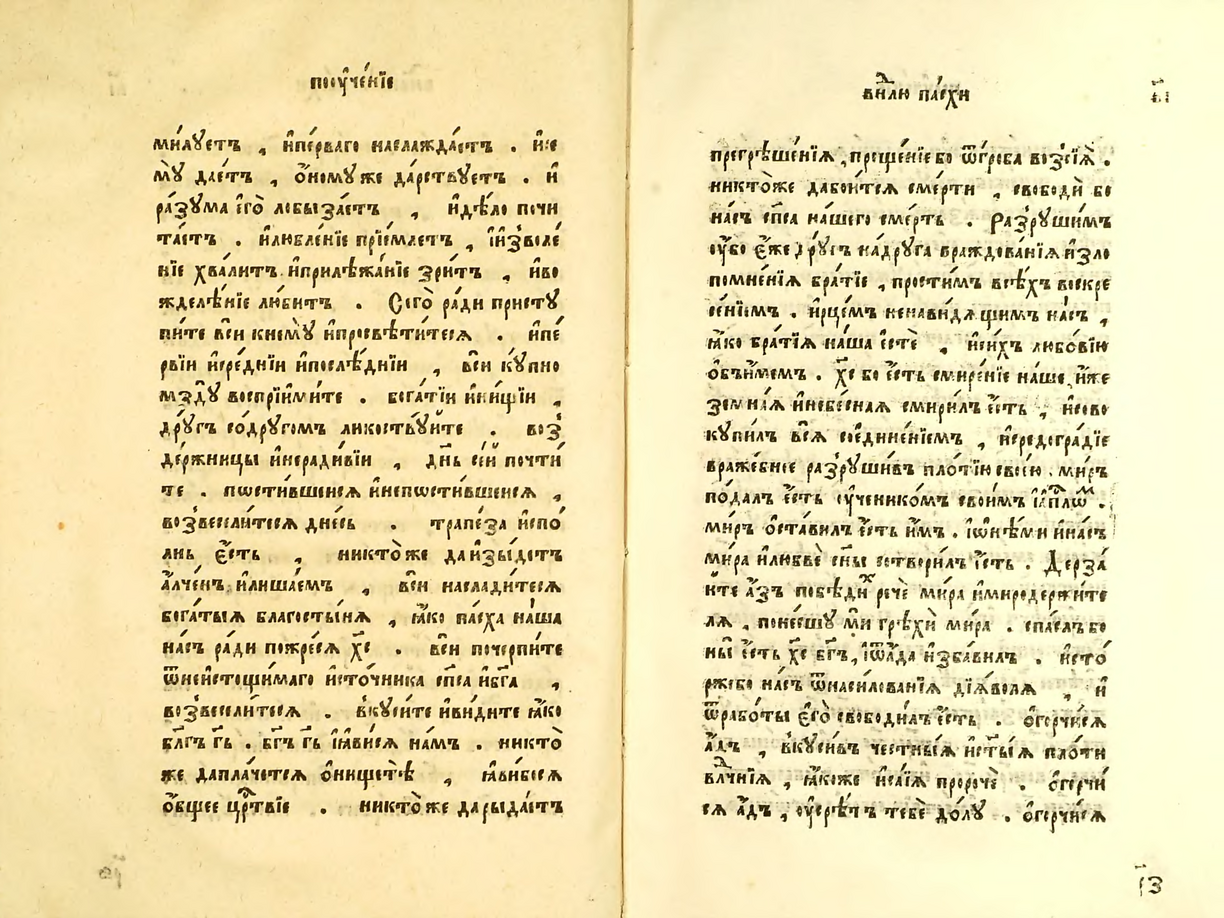 поꙋче́нїе
ми́лꙋетъ , и҆пе́рваго наслажда́етъ . и҆се
мꙋ̀ дае́тъ , о҆номꙋ́же да́рствꙋетъ . и҆
ра́зꙋма є҆го̀ лобыза́етъ , и҆дѣ́ло почи
та́етъ . и҆люблє́нїе прїе́млетъ , і҆и҆зволе́
нїе хва́литъ . и҆прилѣжа́нїе зри́тъ , и҆во
жделѣ́нїе лю́битъ . Сего̀ ра́ди пристꙋ
пи́те всѝ кнемꙋ̀ и҆просвѣти́теся . и҆пе́
рвїи и҆сре́днїи и҆послѣ́днїи , всѝ кꙋ́пно
мздꙋ̀ воспрїими́те . бога́тїи и҆ни́щїи ,
дрꙋ́гъ содрꙋ́гомъ ликовствꙋ́йте . воз̾
де́ржницы и҆неради́вїи , дн҃ь се́й почти́
те . пѡсти́вшеися и҆непѡсти́вшеися ,
возвесели́теся дне́сь . трапе́за и҆спо́
лнь є҆́сть , никто́же даи҆зы́детъ
а҆́лченъ и҆лиша́емъ , всѝ наслади́теся
бога́тыѧ благосты́нѧ , ꙗ҆́ко па́сха на́ша
на́съ ра́ди пожре́ся хс҃ . всѝ почерпи́те
ѿнеисто́щимаго и҆сто́чника сп҃са и҆бг҃а ,
возвесели́теся . вкꙋси́те и҆ви́дите ꙗ҆́ко
бл҃гъ гь҃ . бг҃ъ гь҃ і҆ꙗви́ся на́мъ . никто́
же дапла́четсѧ о҆нищетѣ̀ , ꙗ҆ви́босѧ
о҆́бщее црⷭ҇твїе . никто́же дарыда́етъ
внⷣлю па́схи
прегрѣше́нїѧ , проще́нїе бо ѿгро́ба возсїѧ̀ .
никто́же дабои́тсѧ сме́рти , свободѝ бо
на́съ сп҃са на́шего сме́рть . Разрꙋши́мъ
ᲂу҆́бо є҆́же дрꙋ́гъ на́дрꙋга враждова́нїѧ и҆зло
помне́нїѧ бра́тїе , прости́мъ всѣ́хъ воскре
се́нїемъ . и҆рце́мъ ненави́дѧщимъ на́съ ,
ꙗ҆́ко бра́тїѧ на́ша є҆стѐ , и҆си́хъ любо́вїю
о҆бъи́мемъ . хс҃ бо є҆́сть смире́нїе на́ше , и҆́же
земна́ѧ и҆небе́снаѧ смири́лъ є҆́сть , и҆сово
кꙋпи́лъ всѧ̀ соедине́нїемъ , и҆средогра́дїе
вражебное разрꙋши́въ пло́тїю свое́ю . ми́ръ
по́далъ є҆́сть ᲂу҆ченико́мъ свои́мъ і҆а҆пⷭ҇лѡⷨ .
ми́ръ ѡ҆ста́вилъ є҆́сть и҆̀мъ . і҆сни́ми и҆на́съ
ми́ра и҆любвѐ сн҃ы сотвори́лъ є҆́сть . Дерза́
ите а҆́зъ побѣди́хъ речѐ ми́ра и҆миродержи́те
лѧ , поне́сшꙋ мѝ грѣхѝ ми́ра . спа́слъ бо
ны̀ є҆́сть хс҃ бг҃ъ , і҆ѿа҆́да и҆зба́вилъ . и҆сто́
ржебо на́съ ѿнаси́лованїѧ дїѧ́волѧ , и҆
ѿрабо́ты є҆го̀ свободи́лъ є҆́сть . ѡ҆горчи́сѧ
а҆́дъ , вкꙋси́въ че́стныѧ и҆ст҃ы́ѧ пло́ти
влⷣчнїѧ , ꙗ҆́коже и҆са́їѧ проро́че . ѡ҆горчи́
сѧ а҆́дъ , ᲂу҆срѣ́тъ тебѐ до́лꙋ . ѡ҆горчи́сѧ